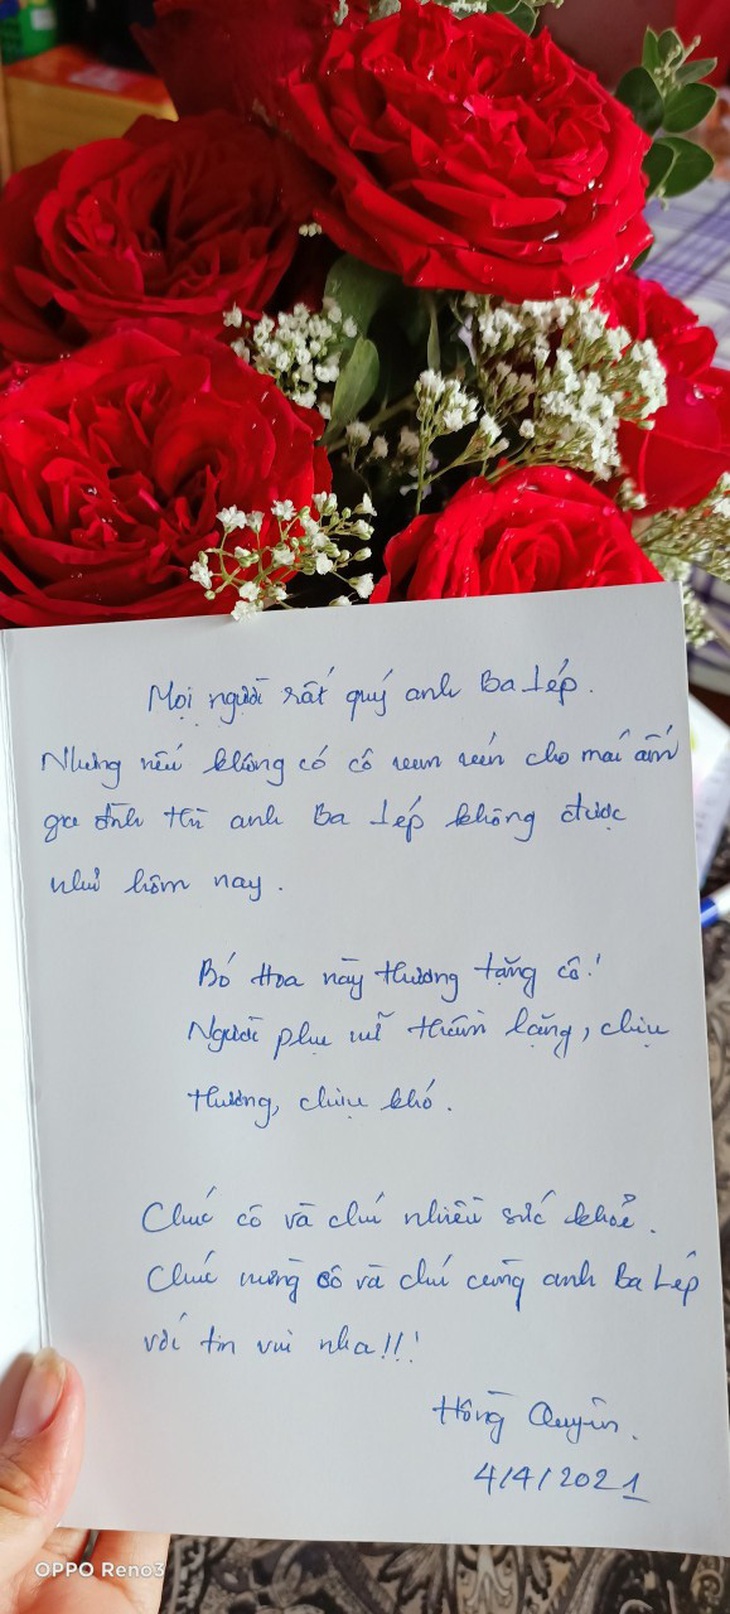 Mọi người rất quý anh Ba Lép.
Nhưng nếu không có cô vun vén cho mái ấm
gia đình thì anh Ba Lép không được
như hôm nay.
Bó Hoa này thương tặng cô!
Người phụ nữ thầm lặng, chịu
thương, chịu khó.
Chúc cô và chú nhiều sức khoẻ.
Chúc mừng cô và chú cùng anh Ba Lép
với tin vui nha!!!
Hồng Quyên.
4/4/2021
OPPO Reno3